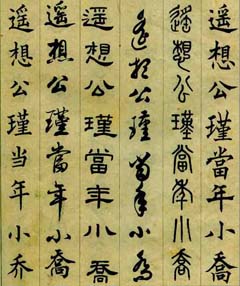 遙想公瑾當年小喬
遙想公瑾當年小喬
遙想公瑾當年小喬
遙想公瑾當年小喬
遙想公瑾當年小喬
遥想公瑾当年小乔